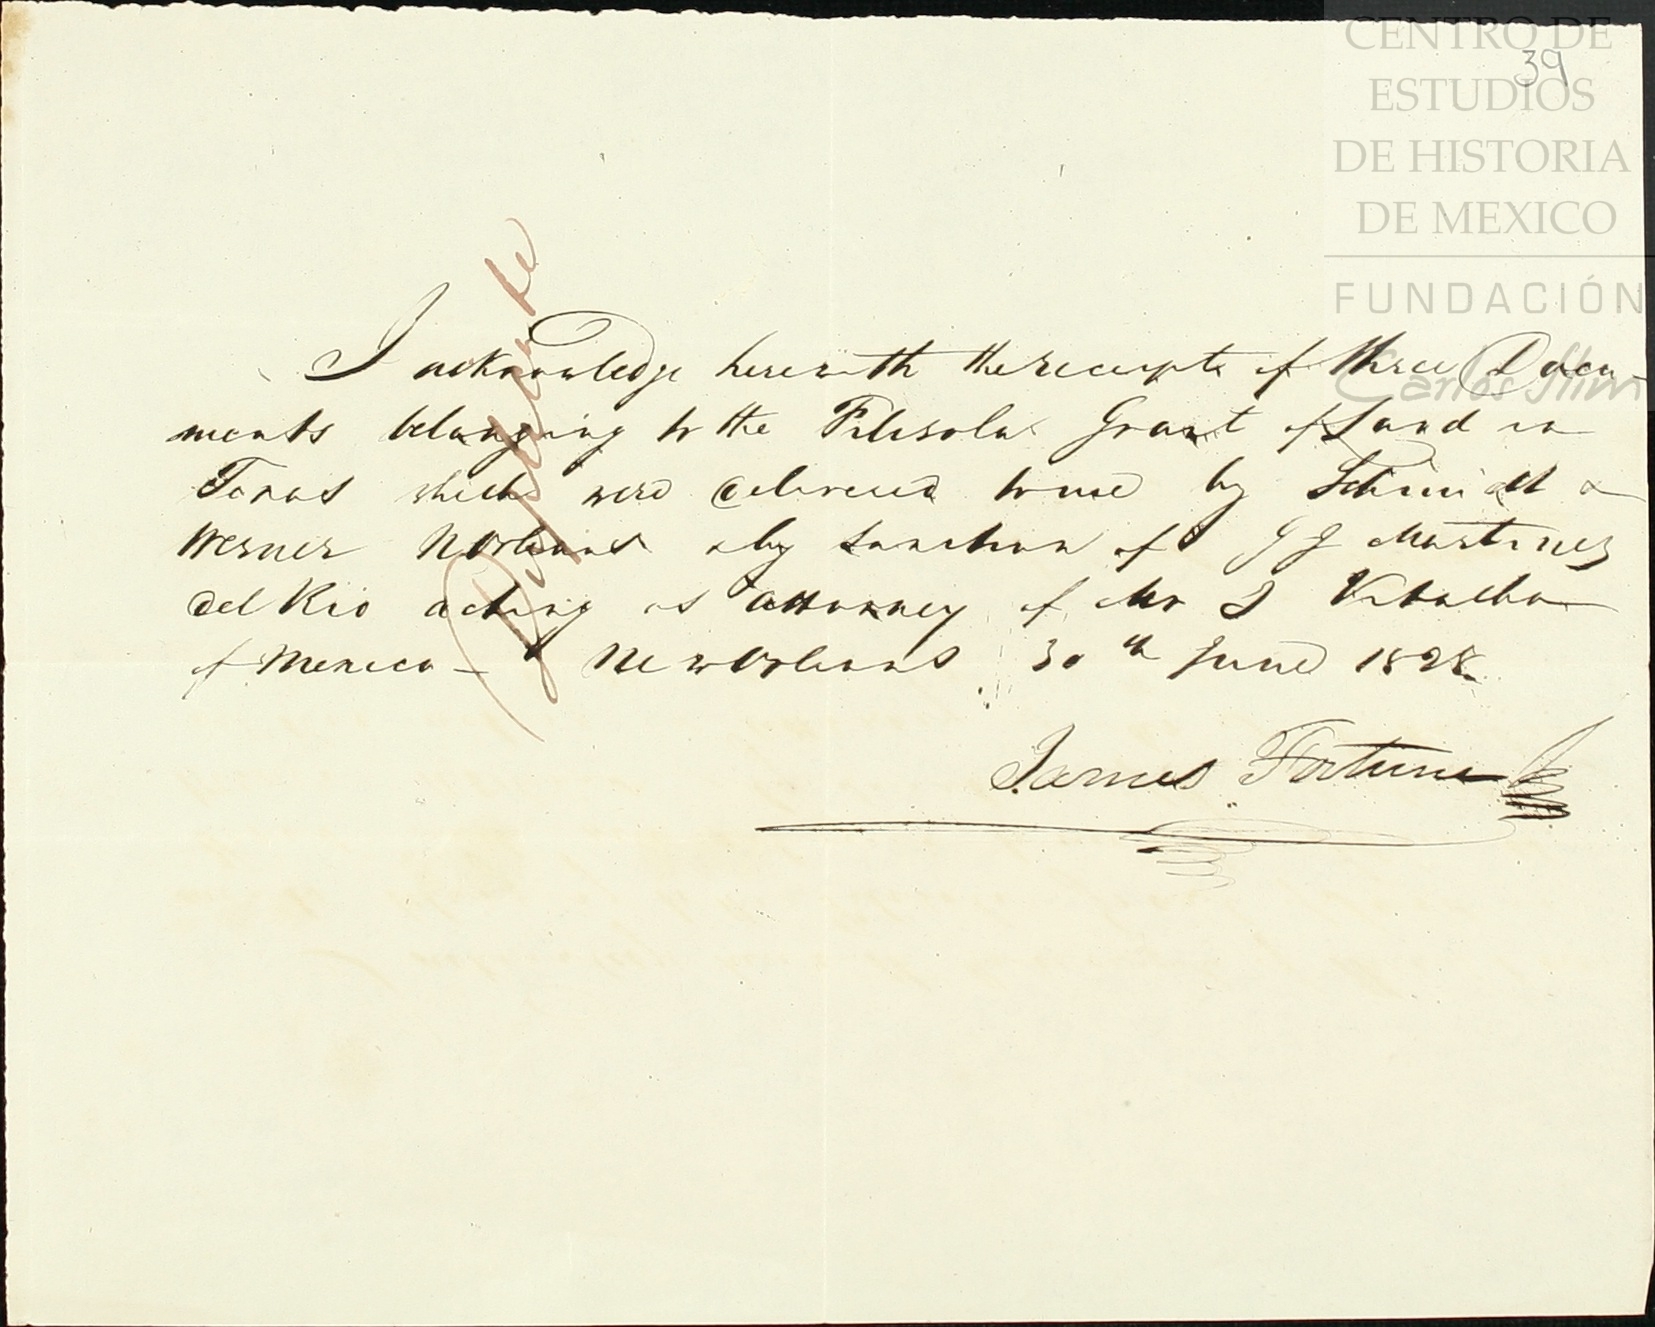 CENTRO DE
39
ESTUDIOS
DE HISTORIA
DE MEXICO
FUNDACIÓN
Carlos Slim
I acknowledge herewith the receipts of three Docu-
ments belonging to the Filisola Grant of Land in
Texas which were delivered to me by Schmidt &
Werner NOrleans by sanction of J J Martinez
del Rio acting as attorney of Mr J
of Mexico - New Orleans 30th June 1828.
James Fortune
Duplicate